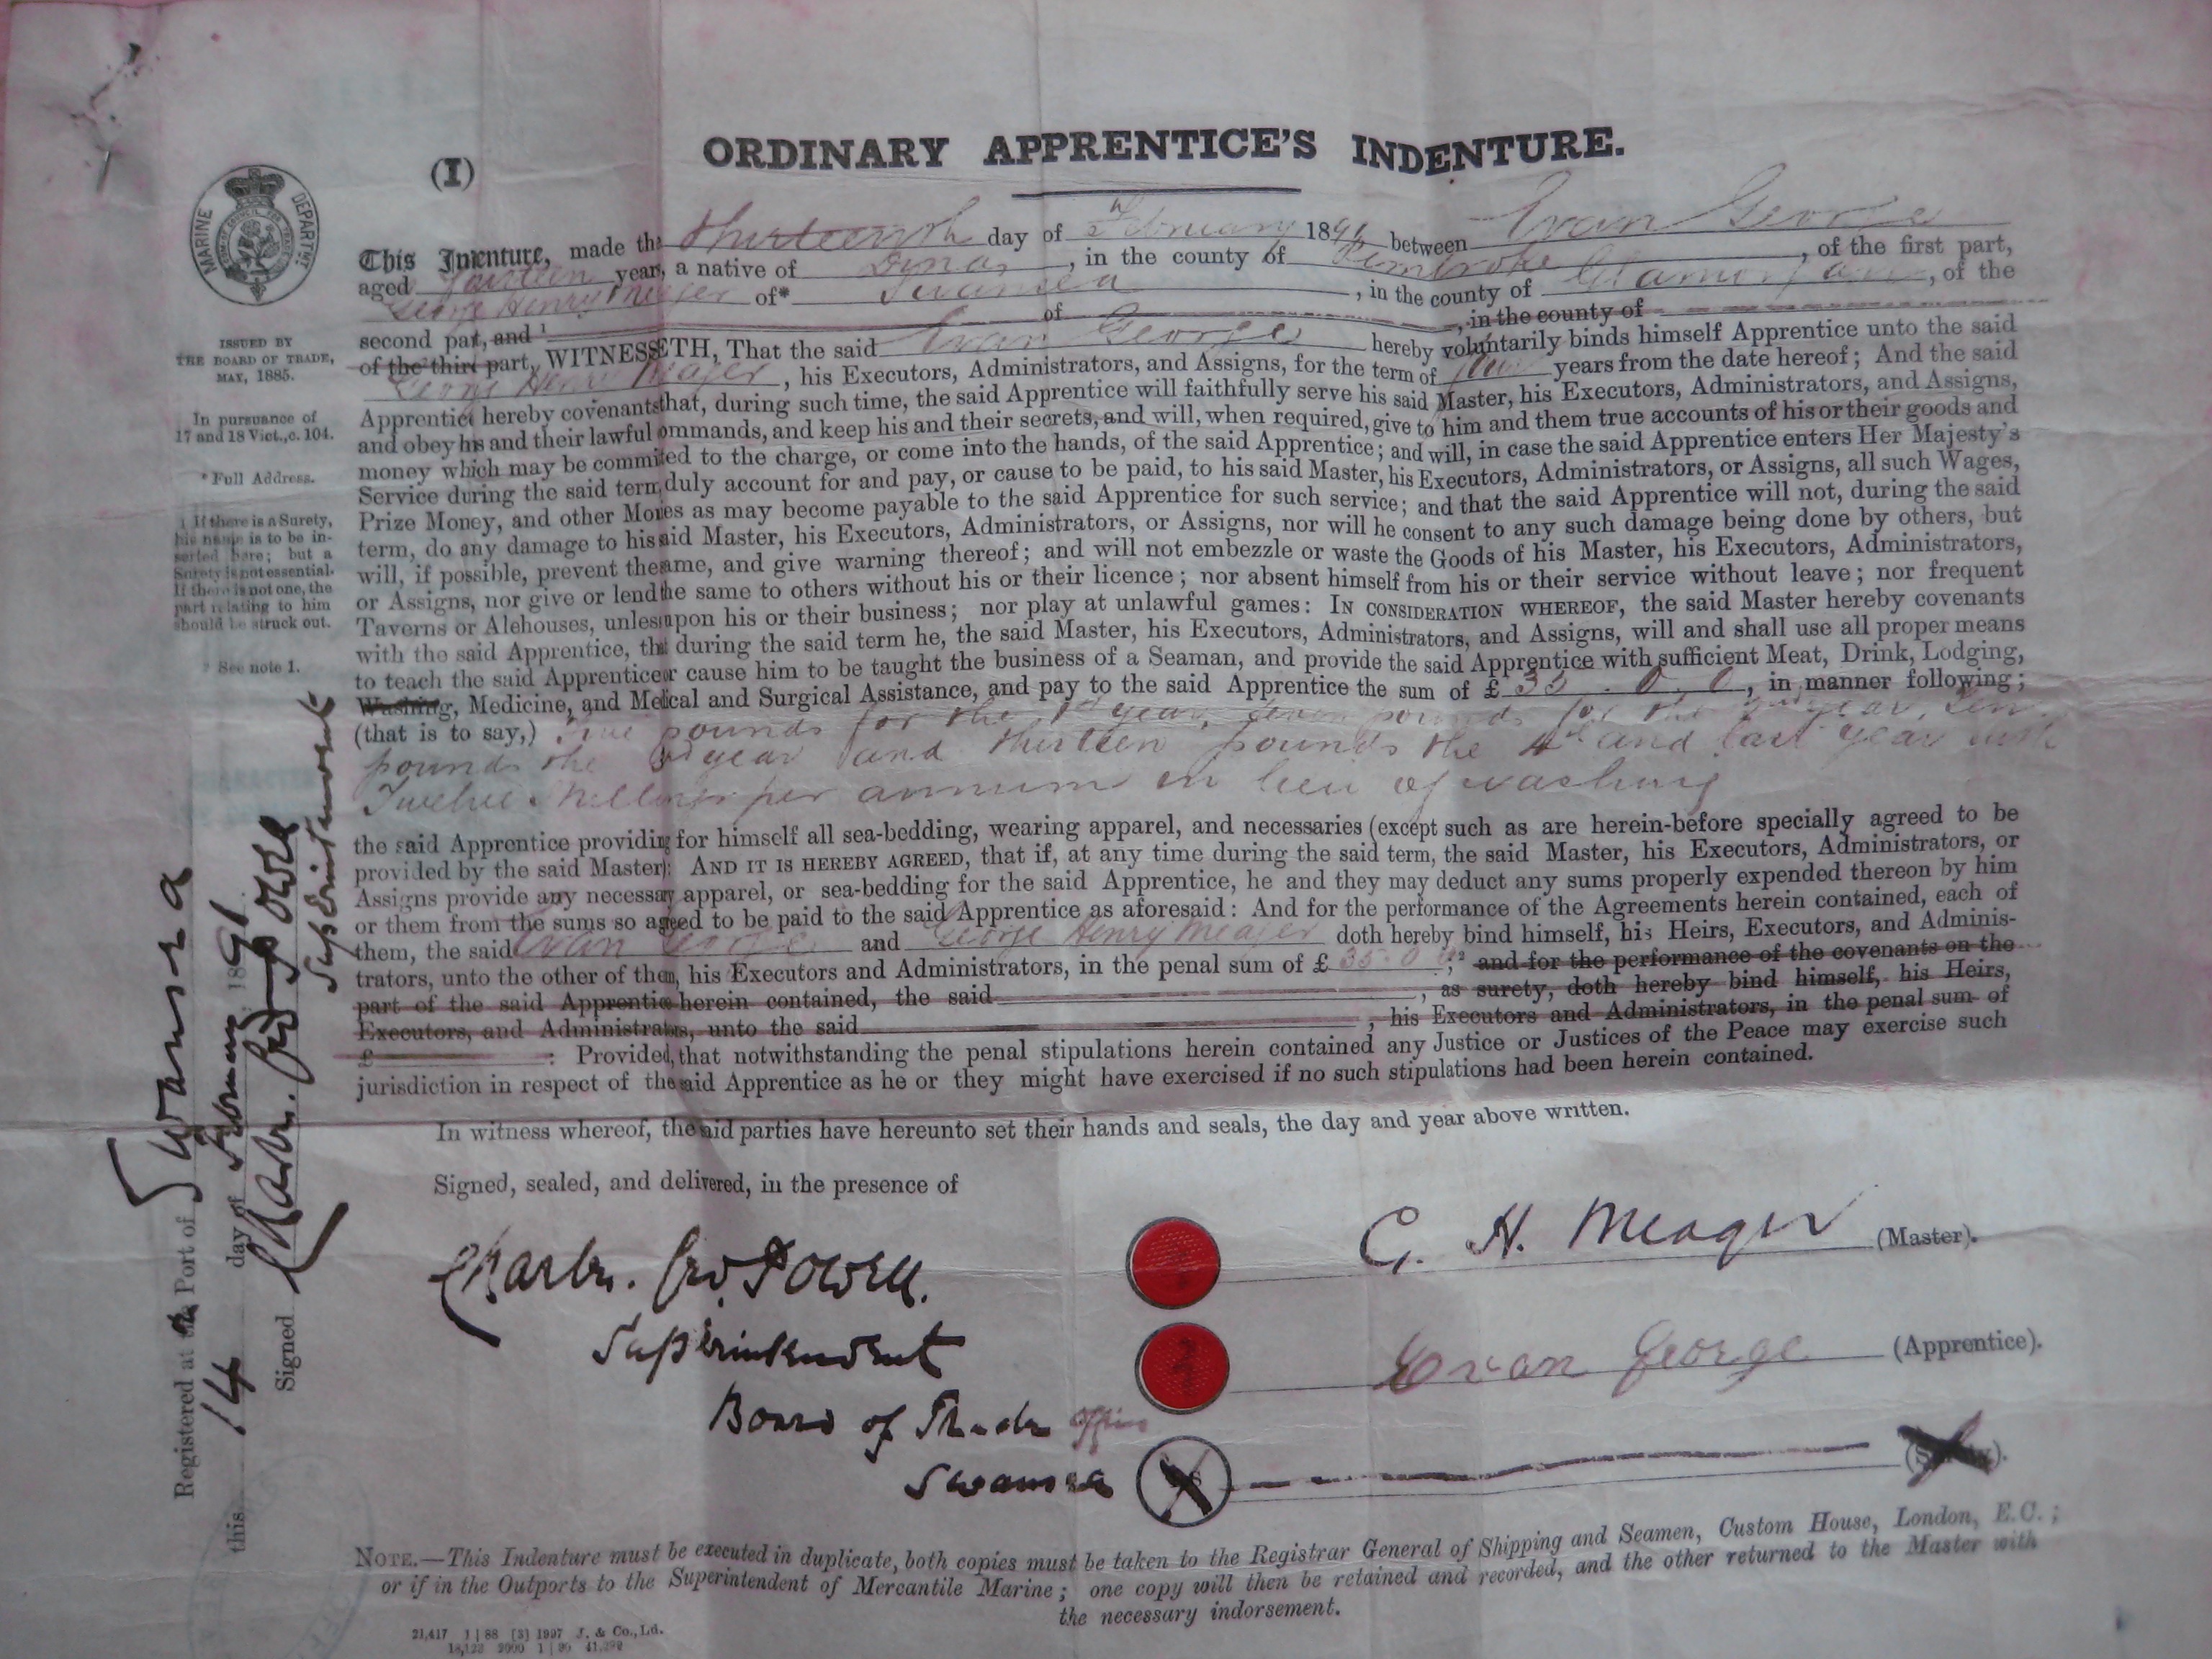 ORDINARY APPRENTICE'S INDENTURE.
(I)
MARINE DEPARTMT.
ISSUED BY
THE BOARD OF TRADE,
MAY, 1885.
In pursuance of
17 and 18 Vict., c. 104.
* Full Address.
1 If there is a Surety,
his name is to be in-
serted here; but a
Surety is not essential.
If there is not one, the
part relating to him
should be struck out.
See note 1.
This Indenture, made the thirteenth day of February 1891 between Evan George
aged fourteen years, a native of Dinas, in the county of Pembroke, of the first part,
George Henry Meager of* Swansea, in the county of Glamorgan, of the
second part, and 1 of , in the county of
of the third part, WITNESSETH, That the said Evan George hereby voluntarily binds himself Apprentice unto the said
George Henry Meager, his Executors, Administrators, and Assigns, for the term of four years from the date hereof; And the said
Apprentice hereby covenants that, during such time, the said Apprentice will faithfully serve his said Master, his Executors, Administrators, and Assigns,
and obey his and their lawful ommands, and keep his and their secrets, and will, when required, give to him and them true accounts of his or their goods and
money which may be commited to the charge, or come into the hands, of the said Apprentice; and will, in case the said Apprentice enters Her Majesty's
Service during the said term, duly account for and pay, or cause to be paid, to his said Master, his Executors, Administrators, or Assigns, all such Wages,
Prize Money, and other Monies as may become payable to the said Apprentice for such service; and that the said Apprentice will not, during the said
term, do any damage to his aid Master, his Executors, Administrators, or Assigns, nor will he consent to any such damage being done by others, but
will, if possible, prevent the ame, and give warning thereof; and will not embezzle or waste the Goods of his Master, his Executors, Administrators,
or Assigns, nor give or lend the same to others without his or their licence; nor absent himself from his or their service without leave; nor frequent
Taverns or Alehouses, unless upon his or their business; nor play at unlawful games: IN CONSIDERATION WHEREOF, the said Master hereby covenants
with the said Apprentice, that during the said term he, the said Master, his Executors, Administrators, and Assigns, will and shall use all proper means
to teach the said Apprentice or cause him to be taught the business of a Seaman, and provide the said Apprentice with sufficient Meat, Drink, Lodging,
Washing, Medicine, and Medical and Surgical Assistance, and pay to the said Apprentice the sum of £ 35 . 0 . 0, in manner following;
(that is to say,) Five pounds for the 1st year, seven pounds for the 2nd year, ten
pounds the 3rd year and thirteen pounds the 4th and last year with
Twelve shillings per annum in lieu of washing
the said Apprentice providing for himself all sea-bedding, wearing apparel, and necessaries (except such as are herein-before specially agreed to be
provided by the said Master): AND IT IS HEREBY AGREED, that if, at any time during the said term, the said Master, his Executors, Administrators, or
Assigns provide any necessary apparel, or sea-bedding for the said Apprentice, he and they may deduct any sums properly expended thereon by him
or them from the sums so agreed to be paid to the said Apprentice as aforesaid: And for the performance of the Agreements herein contained, each of
them, the said Evan George and George Henry Meager doth hereby bind himself, his Heirs, Executors, and Adminis-
trators, unto the other of them, his Executors and Administrators, in the penal sum of £ 35.0 ;2 and for the performance of the covenants on the
part of the said Apprentice herein contained, the said , as surety, doth hereby bind himself, his Heirs,
Executors, and Administrators, unto the said , his Executors and Administrators, in the penal sum of
£ : Provided, that notwithstanding the penal stipulations herein contained any Justice or Justices of the Peace may exercise such
jurisdiction in respect of the aid Apprentice as he or they might have exercised if no such stipulations had been herein contained.
In witness whereof, the aid parties have hereunto set their hands and seals, the day and year above written.
Signed, sealed, and delivered, in the presence of
Charles. Geo. Powell.
Superintendent
Board of Trade Office
Swansea
G. H. Meager (Master).
Evan George (Apprentice).
Registered at the Port of Swansea
this 14 day of February 1891
Signed Charles. Geo Powell
Superintendent
NOTE.—This Indenture must be executed in duplicate, both copies must be taken to the Registrar General of Shipping and Seamen, Custom House, London, E.C.;
or if in the Outports to the Superintendent of Mercantile Marine; one copy will then be retained and recorded, and the other returned to the Master with
the necessary indorsement.
21,417 1 | 88 (3) 1997 J. & Co., Ld.
18,123 2000 1 | 90